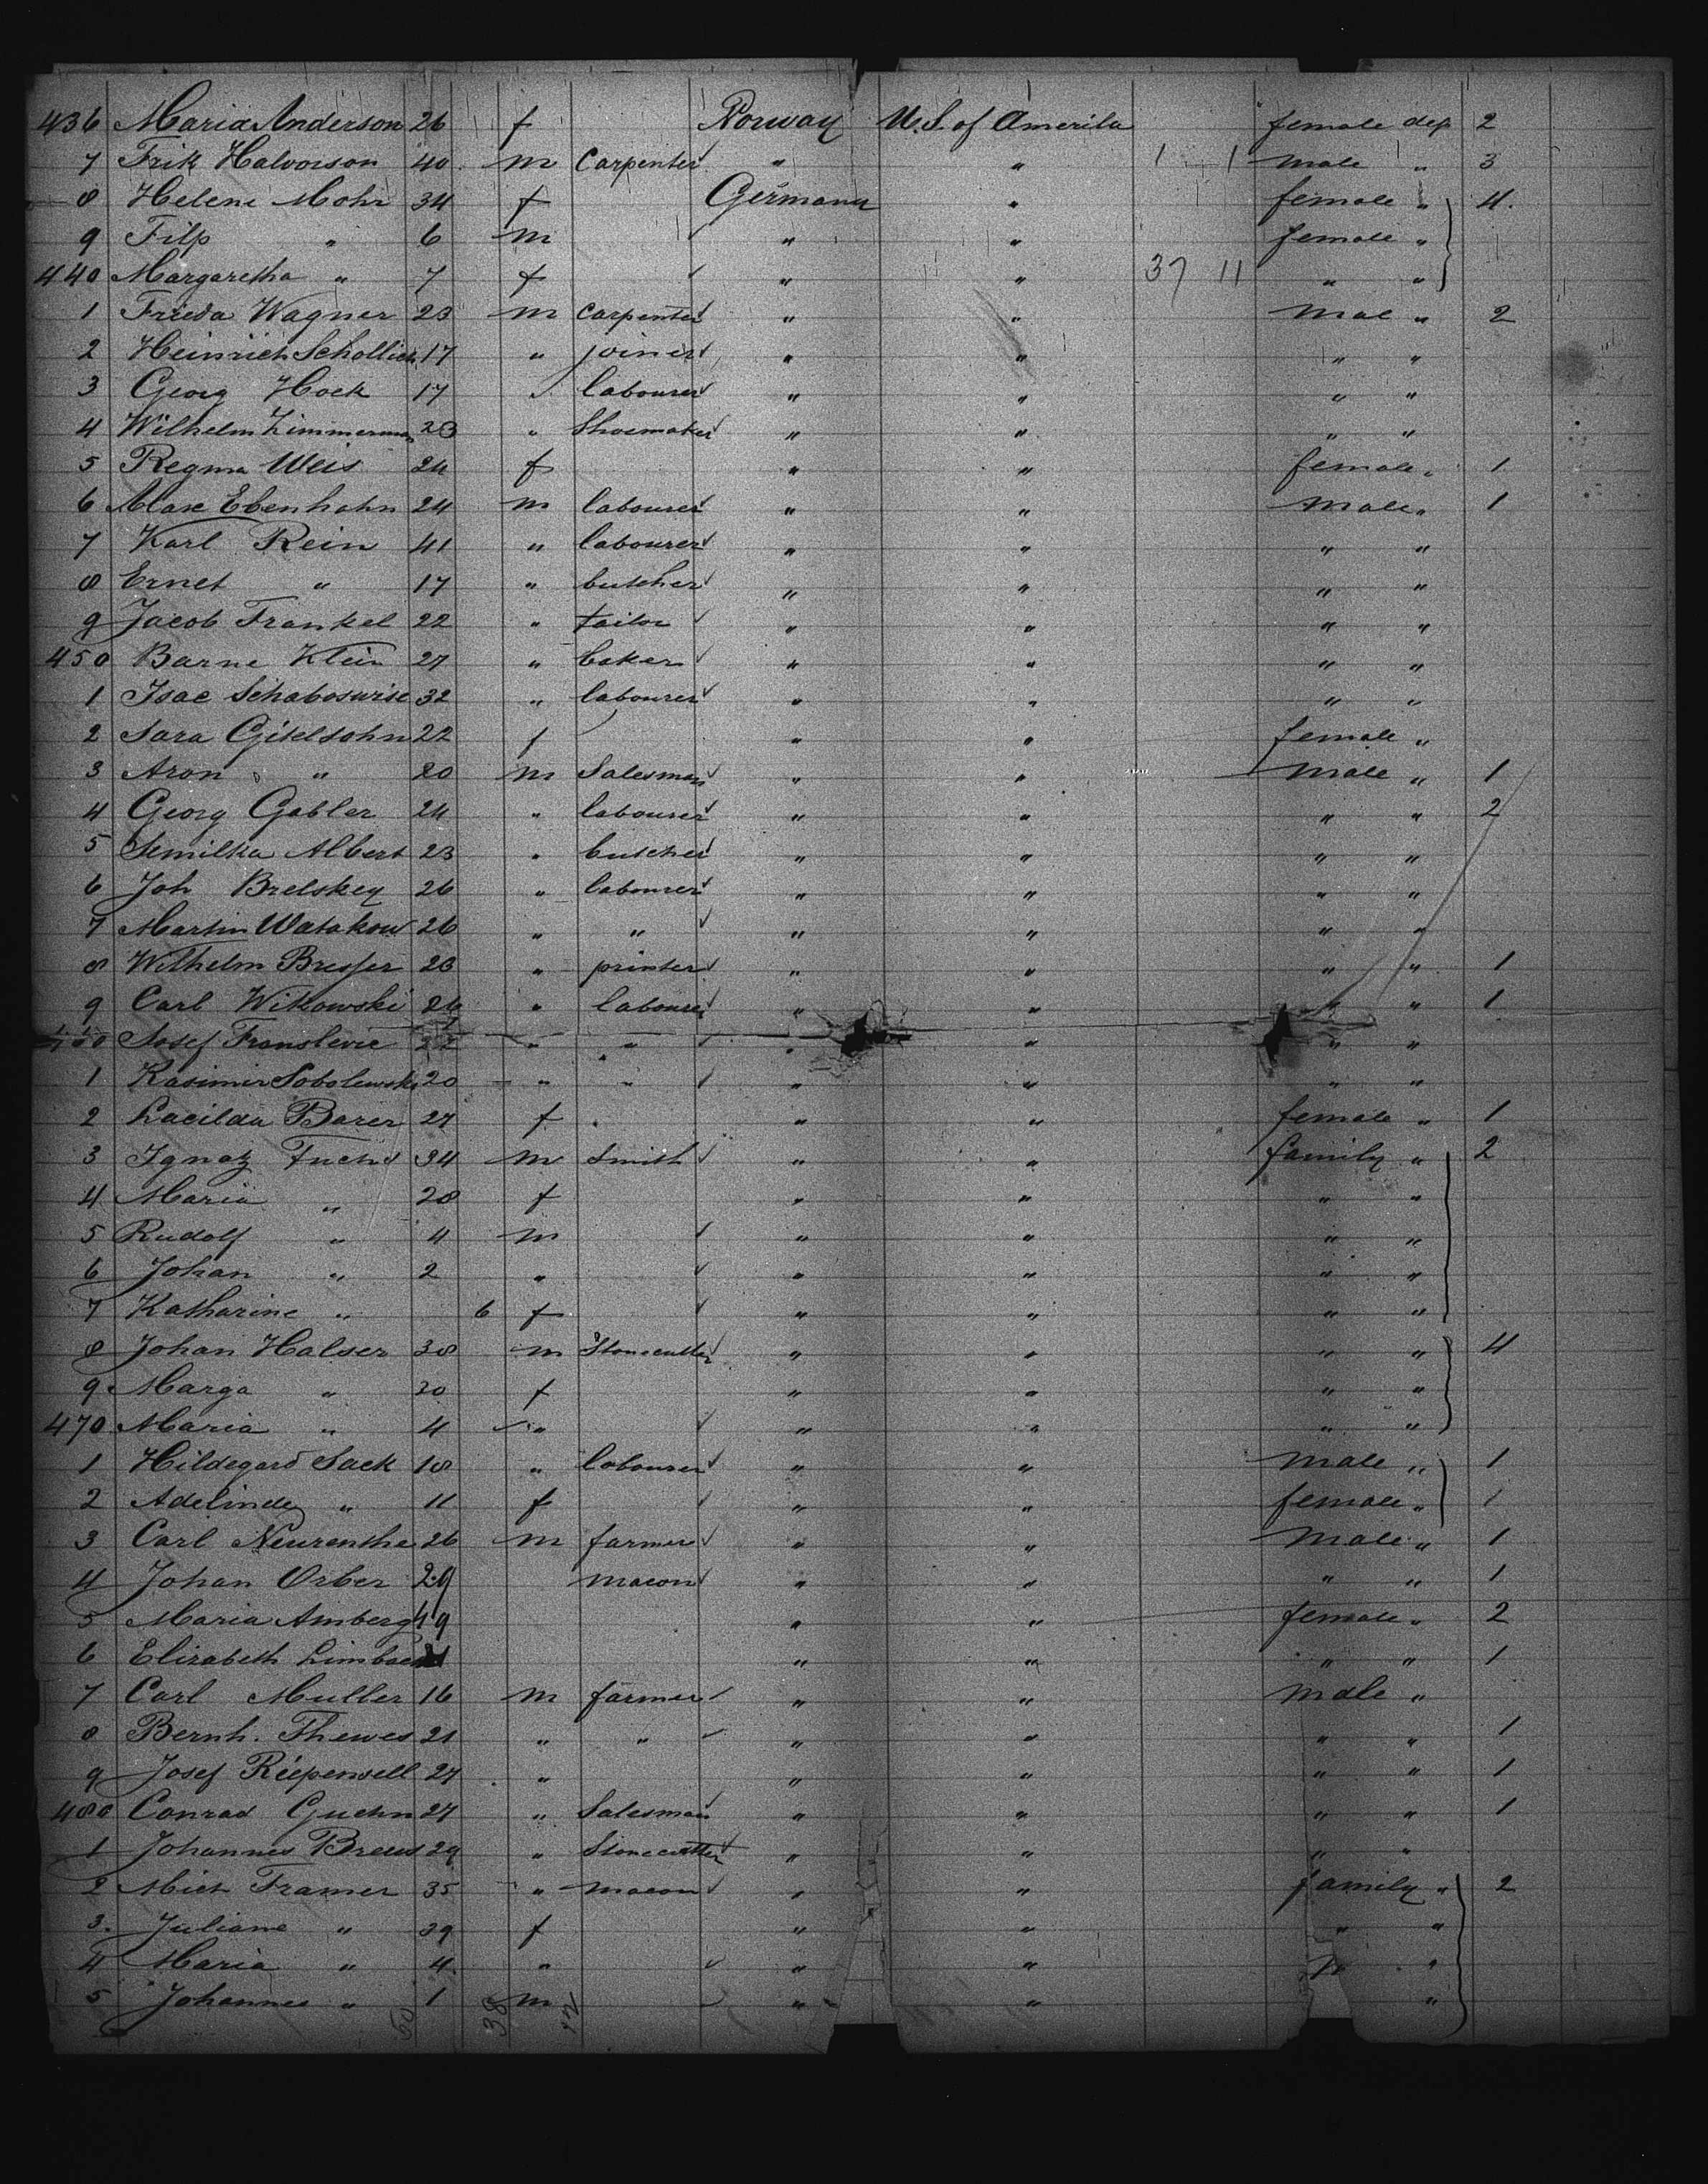 436 Maria Anderson 26 f Norway U.S. of Amerika female dep 2
7 Frik Halvorson 40 m Carpenter " " 1 1 male " 3
8 Helene Mohr 34 f Germany " female " 4.
9 Filp " 6 m " " female "
440 Margaretha " 7 f " " 37 11 " "
1 Frieda Wagner 23 m Carpenter " " Mal " 2
2 Heinrich Schollich 17 " joiner " " " "
3 Georg Hock 17 " labourer " " " "
4 Wilhelm Zimmerman 23 " Shoemaker " " " "
5 Regina Weis 24 f " " female " 1
6 Max Ebenhahn 24 m labourer " " Male " 1
7 Karl Rein 41 " labourer " " " "
8 Ernet " 17 " butcher " " " "
9 Jacob Frankel 22 " tailor " " " "
450 Barne Klein 27 " baker " " " "
1 Isac Schaboswise 32 " labourer " " " "
2 Sara Gitelsohn 22 f " " female "
3 Aron " 20 m Salesman " " Male " 1
4 Georg Gabler 24 " labourer " " " " 2
5 Semilka Albert 23 " butcher " " " "
6 Joh Brelskey 26 " labourer " " " "
7 Martin Watakow 26 " " " " " "
8 Wilhelm Bresser 23 " printer " " " " 1
9 Carl Witkowski 26 " labourer " " " " 1
460 Josef Franslevic 22 " " " " " "
1 Kasimir Sobolewski 20 " " " " " "
2 Lacilda Barer 27 f " " female " 1
3 Ignatz Fuchs 34 m Smith " " family " 2
4 Maria " 28 f " " " "
5 Rudolf " 4 m " " " "
6 Johan " 2 " " " " "
7 Katharine " 6 f " " " "
8 Johan Halser 38 m Stonecutter " " " " 4
9 Marga " 30 f " " " "
470 Maria " 4 " " " " "
1 Hildegard Sack 18 " labourer " " Male " 1
2 Adelinde " 11 f " " female " 1
3 Carl Neurenthe 26 m farmer " " Male " 1
4 Johan Orber 29 macon " " " " 1
5 Maria Amberg 19 " " female " 2
6 Elizabeth " " " " 1
7 Carl Muller 16 m farmer " " male "
8 Bernh. Thewes 21 " " " " " " 1
9 Josef Riepensell 27 " " " " " 1
480 Conrad Guehn 27 " Salesman " " " " 1
1 Johannes Breus 29 " Stonecutter " " " "
2 Mich Framer 35 " macon " " family " 2
3. Juliane " 39 f " " " "
4 Maria " 4 " " " " "
5 Johannes " 1 m " " "
50 38 12